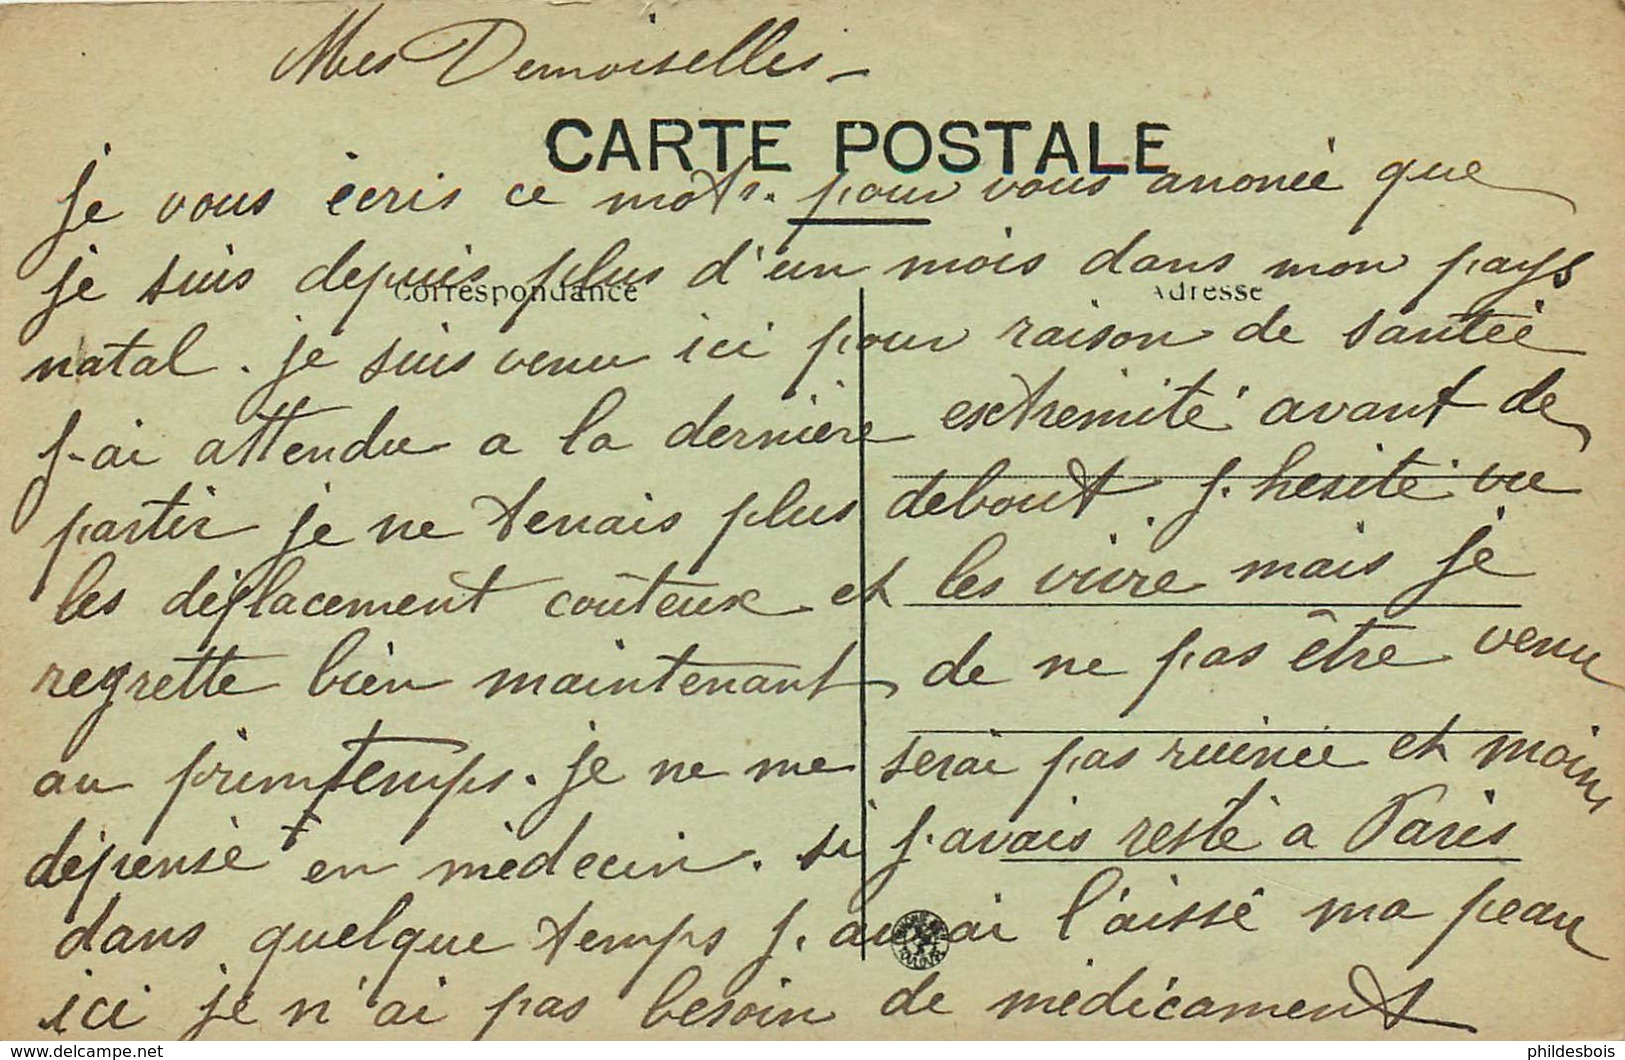 Mes Demoiselles –
CARTE POSTALE
je vous écris ce mots. pour vous anonée que
je suis depuis plus d'un mois dans mon pays
Correspondance Adresse
natal. je suis venu ici pour raison de santée
j.ai attendu a la dernière extrémité avant de
partir je ne tenais plus debout. j.hesité vu
les déplacement coûteux et les vivre mais je
regrette bien maintenant de ne pas être venu
au printemps. je ne me serai pas ruinée et moins
dépensé en médecin. si j.avais resté a Paris
dans quelque temps j.aurai l'aissé ma peau
ici je n'ai pas besoin de médicament
delcampe.net
phildesbois